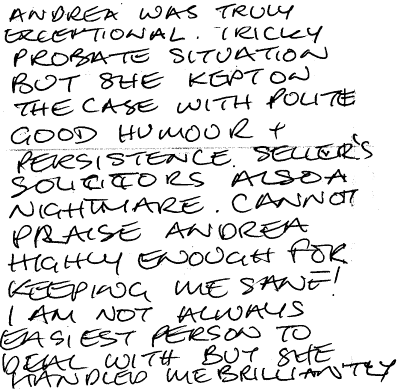 ANDREA WAS TRULY
EXCEPTIONAL. TRICKY
PROBATE SITUATION
BUT SHE KEPT ON
THE CASE WITH POLITE
GOOD HUMOUR +
PERSISTENCE. SELLER'S
SOLICITORS ALSO A
NIGHTMARE. CANNOT
PRAISE ANDREA
HIGHLY ENOUGH FOR
KEEPING ME SANE!
I AM NOT ALWAYS
EASIEST PERSON TO
DEAL WITH BUT SHE
HANDLED ME BRILLIANTLY